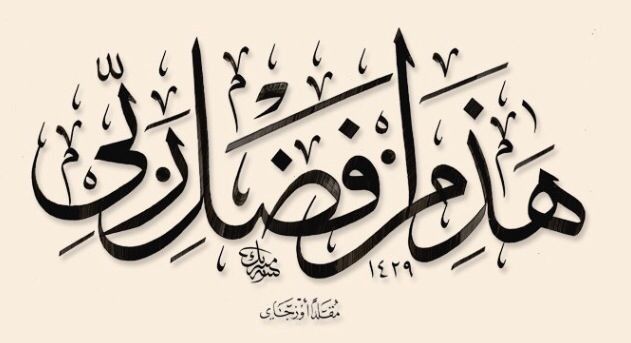 هَذَا مِن فَضْلِ رَبِّي
١٤٢٩
مُقَلِّدًا أوزچاى